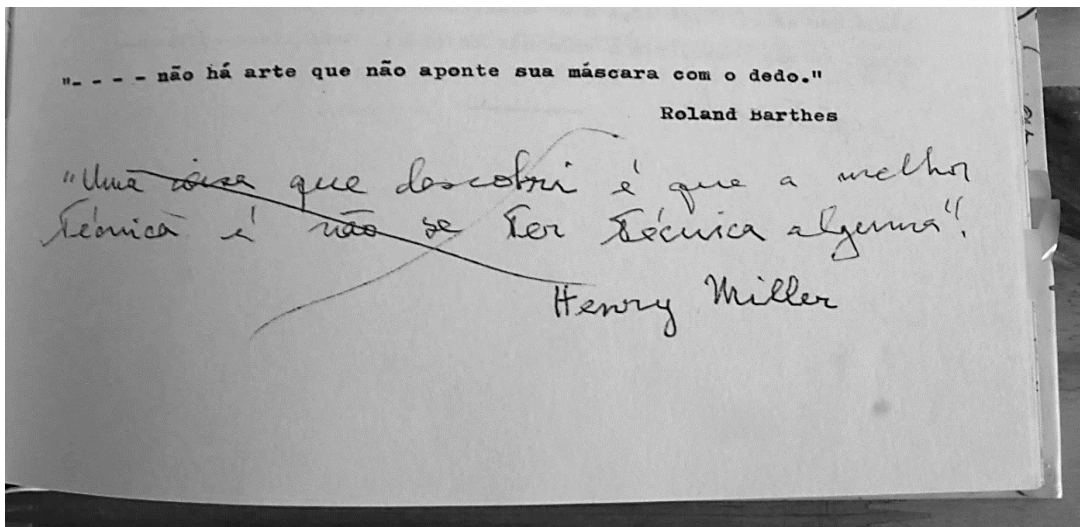 "_ _ _ _ não há arte que não aponte sua máscara com o dedo."
Roland Barthes
"Uma coisa que descobri é que a melhor
técnica é não se ter técnica alguma".
Henry Miller